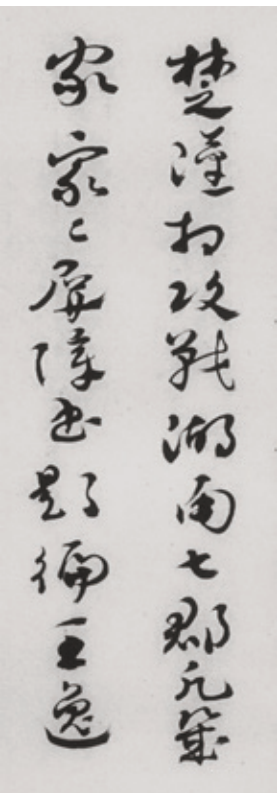 楚漢相攻戰湖南七郡凡幾
家家〻屏障書題徧王逸